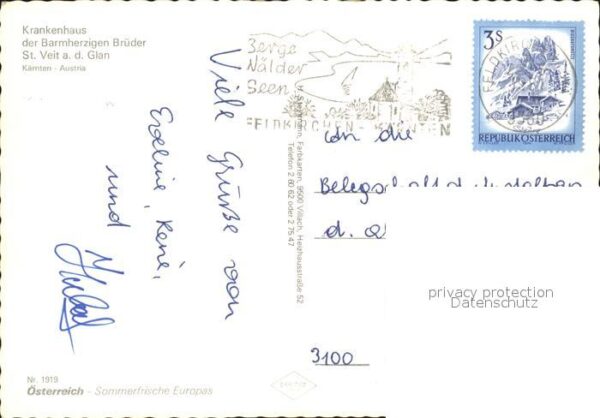 Krankenhaus
der Barmherzigen Brüder
St. Veit a. d. Glan
Kärnten - Austria
Viele Grüße von
Eveline, René,
und
Berge
Wälder
Seen
FELDKIRCHEN - KÄRNTEN
3S
REPUBLIK ÖSTERREICH
An die
Belegschaft d.
d.
3100
Farbkarten, 9500 Villach, Heizhausstraße 52
Telefon 2 60 62 oder 2 75 47
privacy protection
Datenschutz
Nr. 1919
Österreich - Sommerfrische Europas